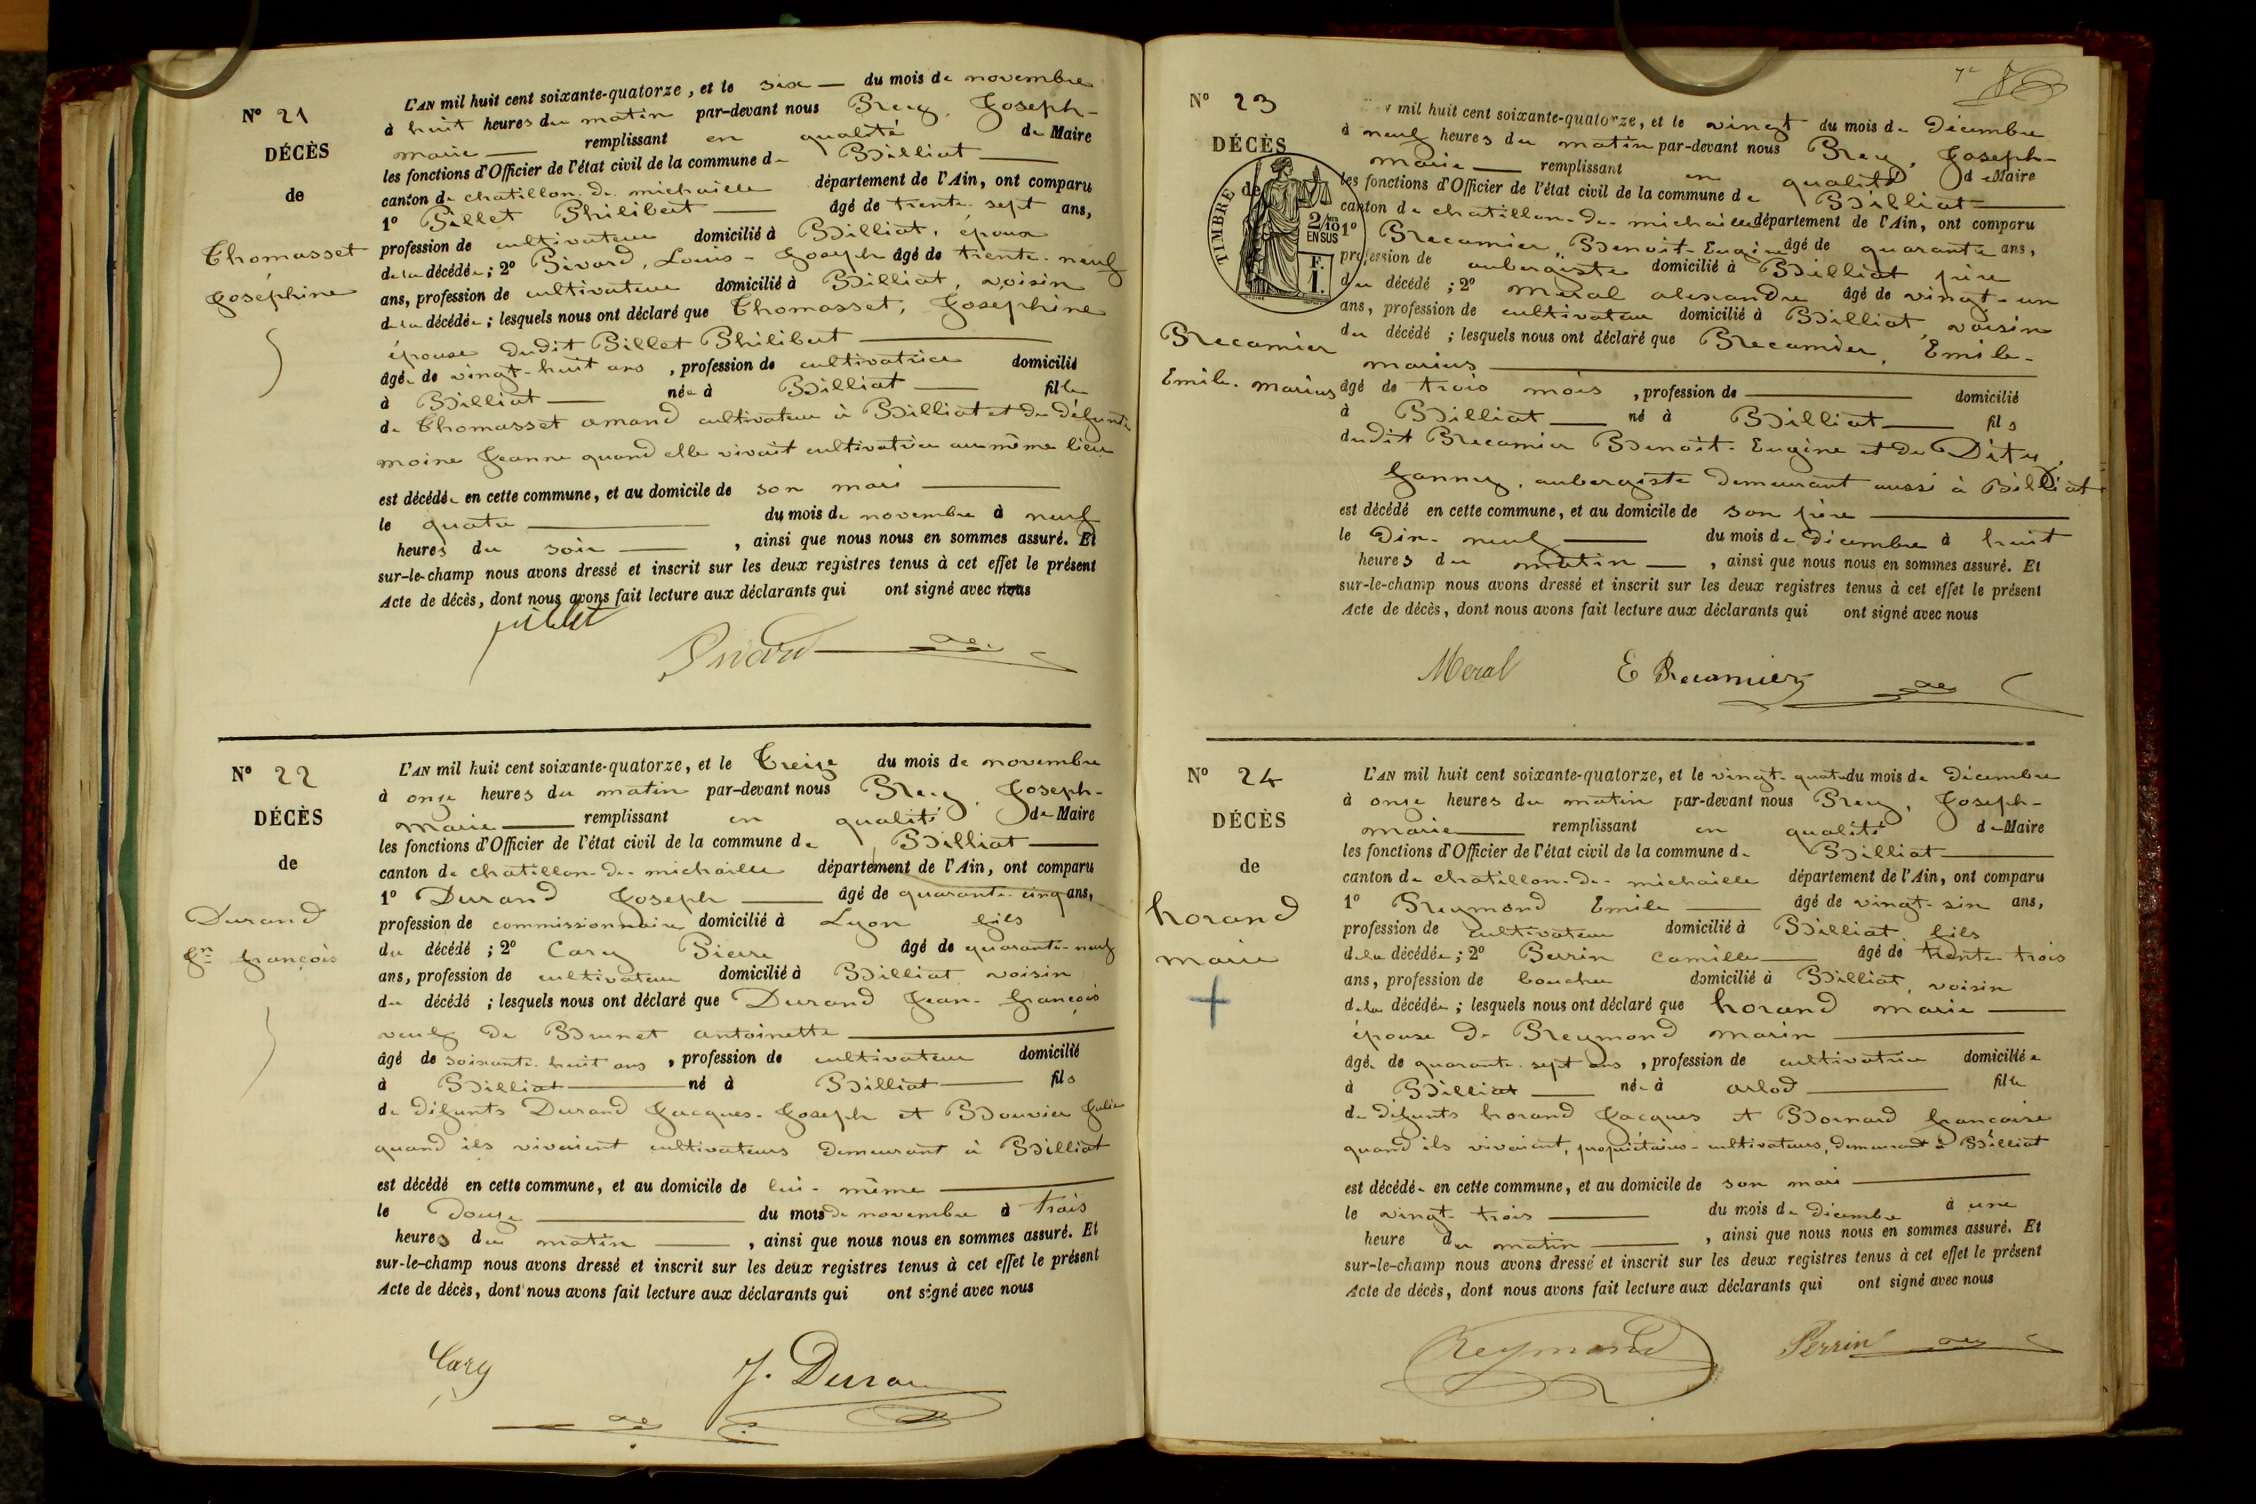 Nº 21
DÉCÈS
de
Thomasset
Joséphine
L'AN mil huit cent soixante-quatorze, et le six du mois de novembre
à huit heures du matin par-devant nous Joseph-
marie remplissant en qualité de Maire
les fonctions d'Officier de l'état civil de la commune de Billiat
canton de chatillon-de-michaille département de l'Ain, ont comparu
1º Pillet Philibert âgé de trente-sept ans,
profession de cultivateur domicilié à Billiat, époux
de la décédée; 2º Pivard, Louis-Joseph âgé de trente-neuf
ans, profession de cultivateur domicilié à Billiat, voisin
de la décédée; lesquels nous ont déclaré que Thomasset, Josephine
épouse dudit Pillet Philibert
âgée de vingt-huit ans, profession de cultivatrice domicilié
à Billiat née à Billiat fille
de Thomasset amand cultivateur à Billiat et de défunte
moine Jeanne quand elle vivait cultivatrice au même lieu
est décédée en cette commune, et au domicile de son mari
le quatre du mois de novembre à neuf
heures du soir, ainsi que nous nous en sommes assuré. Et
sur-le-champ nous avons dressé et inscrit sur les deux registres tenus à cet effet le présent
Acte de décès, dont nous avons fait lecture aux déclarants qui ont signé avec nous
pillet
Pivard
Nº 22
DÉCÈS
de
Durand
Jn françois
L'AN mil huit cent soixante-quatorze, et le Treize du mois de novembre
à onze heures du matin par-devant nous Joseph-
marie remplissant en qualité de Maire
les fonctions d'Officier de l'état civil de la commune de Billiat
canton de chatillon-de-michaille département de l'Ain, ont comparu
1º Durand Joseph âgé de quarante-cinq ans,
profession de commissionnaire domicilié à Lyon fils
du décédé; 2º Cary Pierre âgé de quarante-neuf
ans, profession de cultivateur domicilié à Billiat voisin
du décédé; lesquels nous ont déclaré que Durand Jean-françois
veuf de Brunet antoinette
âgé de soixante-huit ans, profession de cultivateur domicilié
à Billiat né à Billiat fils
de défunts Durand Jacques-Joseph et Bouvier Julie
quand ils vivaient cultivateurs demeurant à Billiat
est décédé en cette commune, et au domicile de lui-même
le douze du mois de novembre à trois
heures du matin, ainsi que nous nous en sommes assuré. Et
sur-le-champ nous avons dressé et inscrit sur les deux registres tenus à cet effet le présent
Acte de décès, dont nous avons fait lecture aux déclarants qui ont signé avec nous
Cary
J. Duran
Nº 23
DÉCÈS
de
TIMBRE
2/10
EN SUS
F.
1.
Recamier
Emile-marius
mil huit cent soixante-quatorze, et le vingt du mois de Décembre
à neuf heures du matin par-devant nous Joseph-
marie remplissant en qualité de Maire
les fonctions d'Officier de l'état civil de la commune de Billiat
canton de chatillon-de-michaille département de l'Ain, ont comparu
1º Recamier, Benoit-Eugène âgé de quarante ans,
profession de aubergiste domicilié à Billiat père
du décédé; 2º meral alexandre âgé de vingt-un
ans, profession de cultivateur domicilié à Billiat, voisin
du décédé; lesquels nous ont déclaré que Recamier, Emile-
marius
âgé de trois mois, profession de domicilié
à Billiat né à Billiat fils
dudit Recamier Benoît-Eugène et de Ditry
Janny, aubergiste demeurant aussi à Billiat
est décédé en cette commune, et au domicile de son père
le dix-neuf du mois de décembre à huit
heures du matin, ainsi que nous nous en sommes assuré. Et
sur-le-champ nous avons dressé et inscrit sur les deux registres tenus à cet effet le présent
Acte de décès, dont nous avons fait lecture aux déclarants qui ont signé avec nous
Meral
E Recamier
Nº 24
DÉCÈS
de
horand
marie
L'AN mil huit cent soixante-quatorze, et le vingt-quatre du mois de Décembre
à onze heures du matin par-devant nous Joseph-
marie remplissant en qualité de Maire
les fonctions d'Officier de l'état civil de la commune de Billiat
canton de chatillon-de-michaille département de l'Ain, ont comparu
1º Reymond Emile âgé de vingt-six ans,
profession de cultivateur domicilié à Billiat fils
de la décédée; 2º Perrin Camille âgé de trente-trois
ans, profession de boucher domicilié à Billiat, voisin
de la décédée; lesquels nous ont déclaré que horand marie
épouse de Reymond marin
âgée de quarante-sept ans, profession de cultivatrice domiciliée
à Billiat née à arlod fille
de défunts horand Jacques et Bornard françoise
quand ils vivaient, propriétaires-cultivateurs, demeurant à Billiat
est décédée en cette commune, et au domicile de son mari
le vingt-trois du mois de décembre à une
heure du matin, ainsi que nous nous en sommes assuré. Et
sur-le-champ nous avons dressé et inscrit sur les deux registres tenus à cet effet le présent
Acte de décès, dont nous avons fait lecture aux déclarants qui ont signé avec nous
Reymond
Perrin